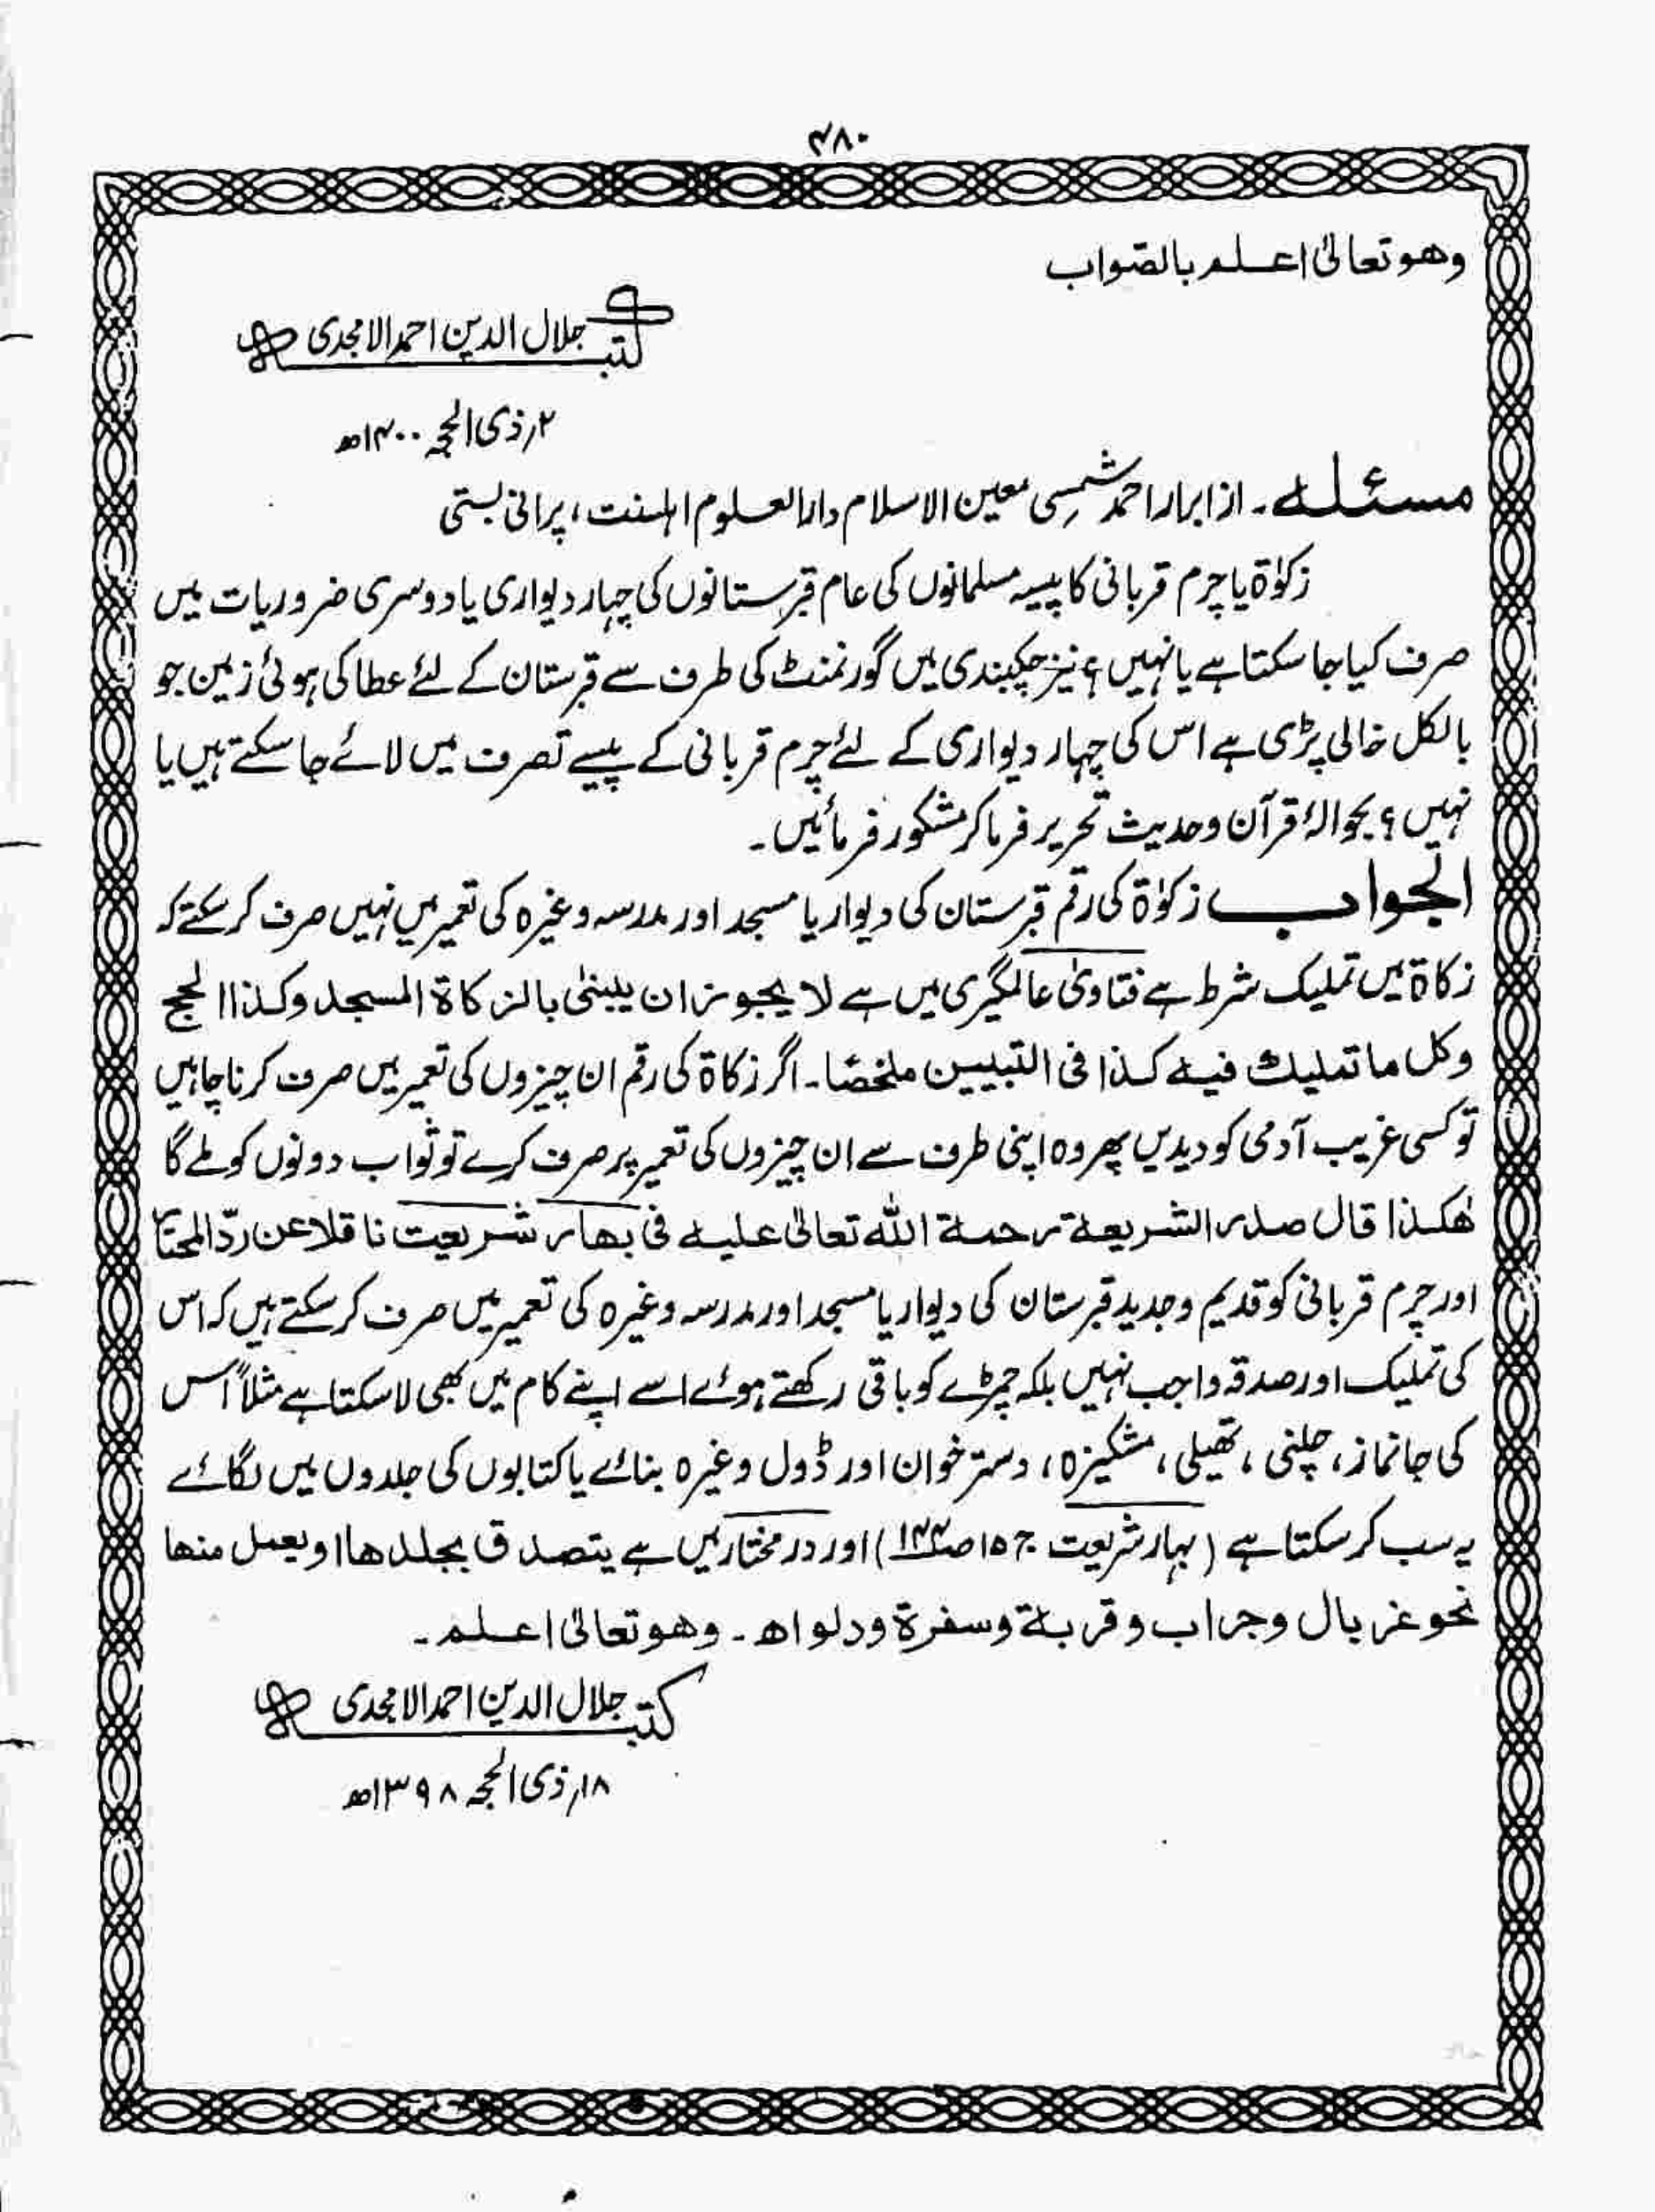 ۴۸۰
وھو تعالیٰ اعلم بالصّواب
کتبہ جلال الدین احمد الامجدی
۲؍ ذی الحجہ ۱۴۰۰ھ
مسئلہ۔ از ابرار احمد شمسی معین الاسلام دارالعلوم اہلسنت، پرانی بستی
زکوٰۃ یا چرم قربانی کا پیسہ مسلمانوں کی عام قبرستانوں کی چہار دیواری یا دوسری ضروریات میں
صرف کیا جا سکتا ہے یا نہیں؟ نیز چکبندی میں گورنمنٹ کی طرف سے قبرستان کے لئے عطا کی ہوئی زمین جو
بالکل خالی پڑی ہے اس کی چہار دیواری کے لئے چرم قربانی کے پیسے تصرف میں لائے جا سکتے ہیں یا
نہیں؟ بحوالۂ قرآن وحدیث تحریر فرما کر مشکور فرمائیں۔
الجواب زکوٰۃ کی رقم قبرستان کی دیوار یا مسجد اور مدرسہ وغیرہ کی تعمیر میں نہیں صرف کر سکتے کہ
زکاۃ میں تملیک شرط ہے فتاویٰ عالمگیری میں ہے لا یجوز ان یبنیٰ بالزکاۃ المسجد وکذا الحج
وکل ما تملیك فیہ کذا فی التبیین ملخصًا۔ اگر زکاۃ کی رقم ان چیزوں کی تعمیر میں صرف کرنا چاہیں
تو کسی غریب آدمی کو دیدیں پھر وہ اپنی طرف سے ان چیزوں کی تعمیر پر صرف کرے تو ثواب دونوں کو ملے گا
ھٰکذا قال صدر الشریعۃ رحمۃ اللہ تعالیٰ علیہ فی بھار شریعت ناقلا عن ردّ المحتار
اور چرم قربانی کو قدیم و جدید قبرستان کی دیوار یا مسجد اور مدرسہ وغیرہ کی تعمیر میں صرف کر سکتے ہیں کہ اس
کی تملیک اور صدقہ واجب نہیں بلکہ چمڑے کو باقی رکھتے ہوئے اسے اپنے کام میں بھی لا سکتا ہے مثلاً اس
کی جانماز، چلنی، تھیلی، مشکیزہ، دسترخوان اور ڈول وغیرہ بنائے یا کتابوں کی جلدوں میں لگائے
یہ سب کر سکتا ہے (بہار شریعت ج ۱۵ ص۱۴۴) اور درمختار میں ہے یتصدق بجلدھا او یعمل منھا
نحو غربال وجراب وقربۃ وسفرۃ ودلو اھ۔ وھو تعالیٰ اعلم۔
کتبہ جلال الدین احمد الامجدی
۱۸؍ ذی الحجہ ۱۳۹۸ھ